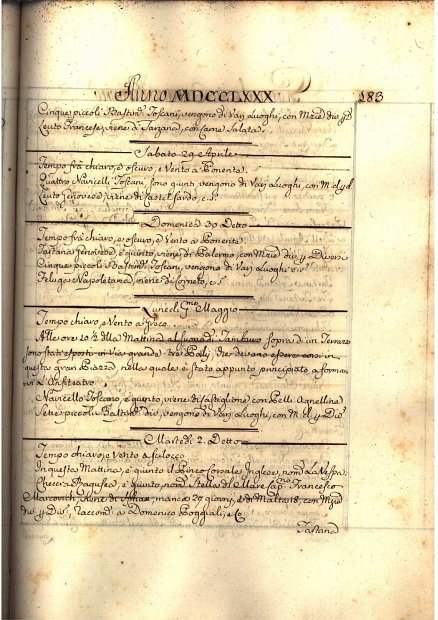 Anno MDCCLXXX 183
Cinque piccoli Bastim.ti Toscani, vengono di Varj Luoghi, con
Leuto Francese, viene di Sarzana, con Carne Salata.
Sabato 29 Aprile
Tempo frà chiaro, e oscuro, e Vento a Ponente.
Quattro Navicelli Toscani, sono giunti, vengono di Varj Luoghi, con
Leuto Genovese, viene di Castel Sardo, c.s.
Domenica 30 Detto
Tempo frà chiaro, e oscuro, e Vento a Ponente.
Tartana Genovese, è giunto, viene di Palermo, con
Cinque piccoli Bastim.ti Toscani, vengono di Varj Luoghi c.s.
Feluga Napoletana, viene di Corneto, c.s.
Lunedì P.mo Maggio
Tempo chiaro, e Vento a Greco.
Alle ore 10½ della Mattina al suono di Tamburo sopra di un Terrazzo
sono stati esposti in Via grande tre Palj, che devono essere corsi in
questa gran Piazza, nella quale è stato appunto principiato a formare
un Anfiteatro.
Navicello Toscano, è giunto, viene di Castiglione, con Pelli Agnelline
Sette piccoli Bastim.ti d.i, vengono di Varj Luoghi, con
Martedì 2. Detto
Tempo chiaro, e Vento a Scilocco.
In questa Mattina, è giunto il Pinco Corsale Inglese, nom.to La Vespa.
Checcia Ragusea, è giunto, nom.ta Stella del Mare Cap.no Francesco
Marcovich, viene di manca 29 giorni, e di Malta 18, con
a Domenico Poggiali, e C.
Tartana